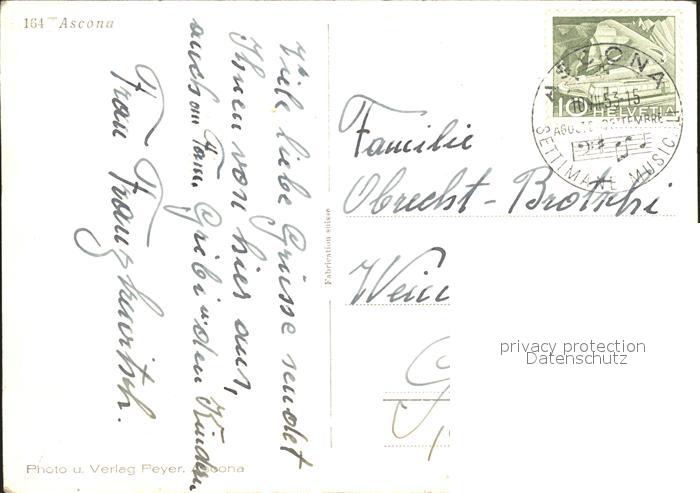 164 Ascona
Viele liebe Grüsse sendet
Ihnen von hier aus,
auch an Fam. Gribi u. den Kindern
Frau
Fabrication suisse
Photo u. Verlag Peyer, Ascona
HELVETIA
10
ASCONA
10.VII.53-15
AGOSTO-SETTEMBRE
SETTIMANE MUSICALI
Familie
Obrecht-Brotschi
privacy protection
Datenschutz